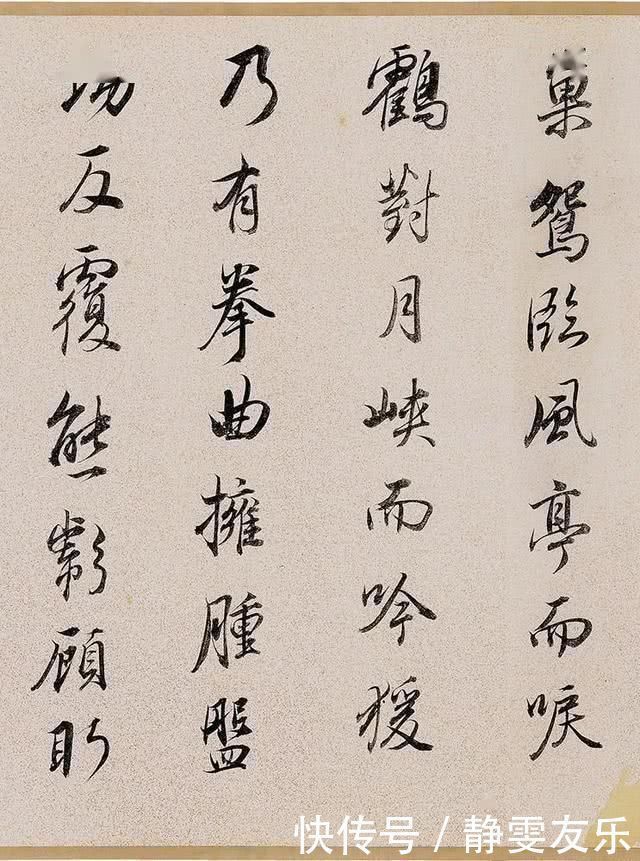 巢鴛臨風亭而唳
鸖對月峽而吟猨
乃有拳曲擁腫盤
坳反覆熊彪顧盼
快传号/静雯友乐